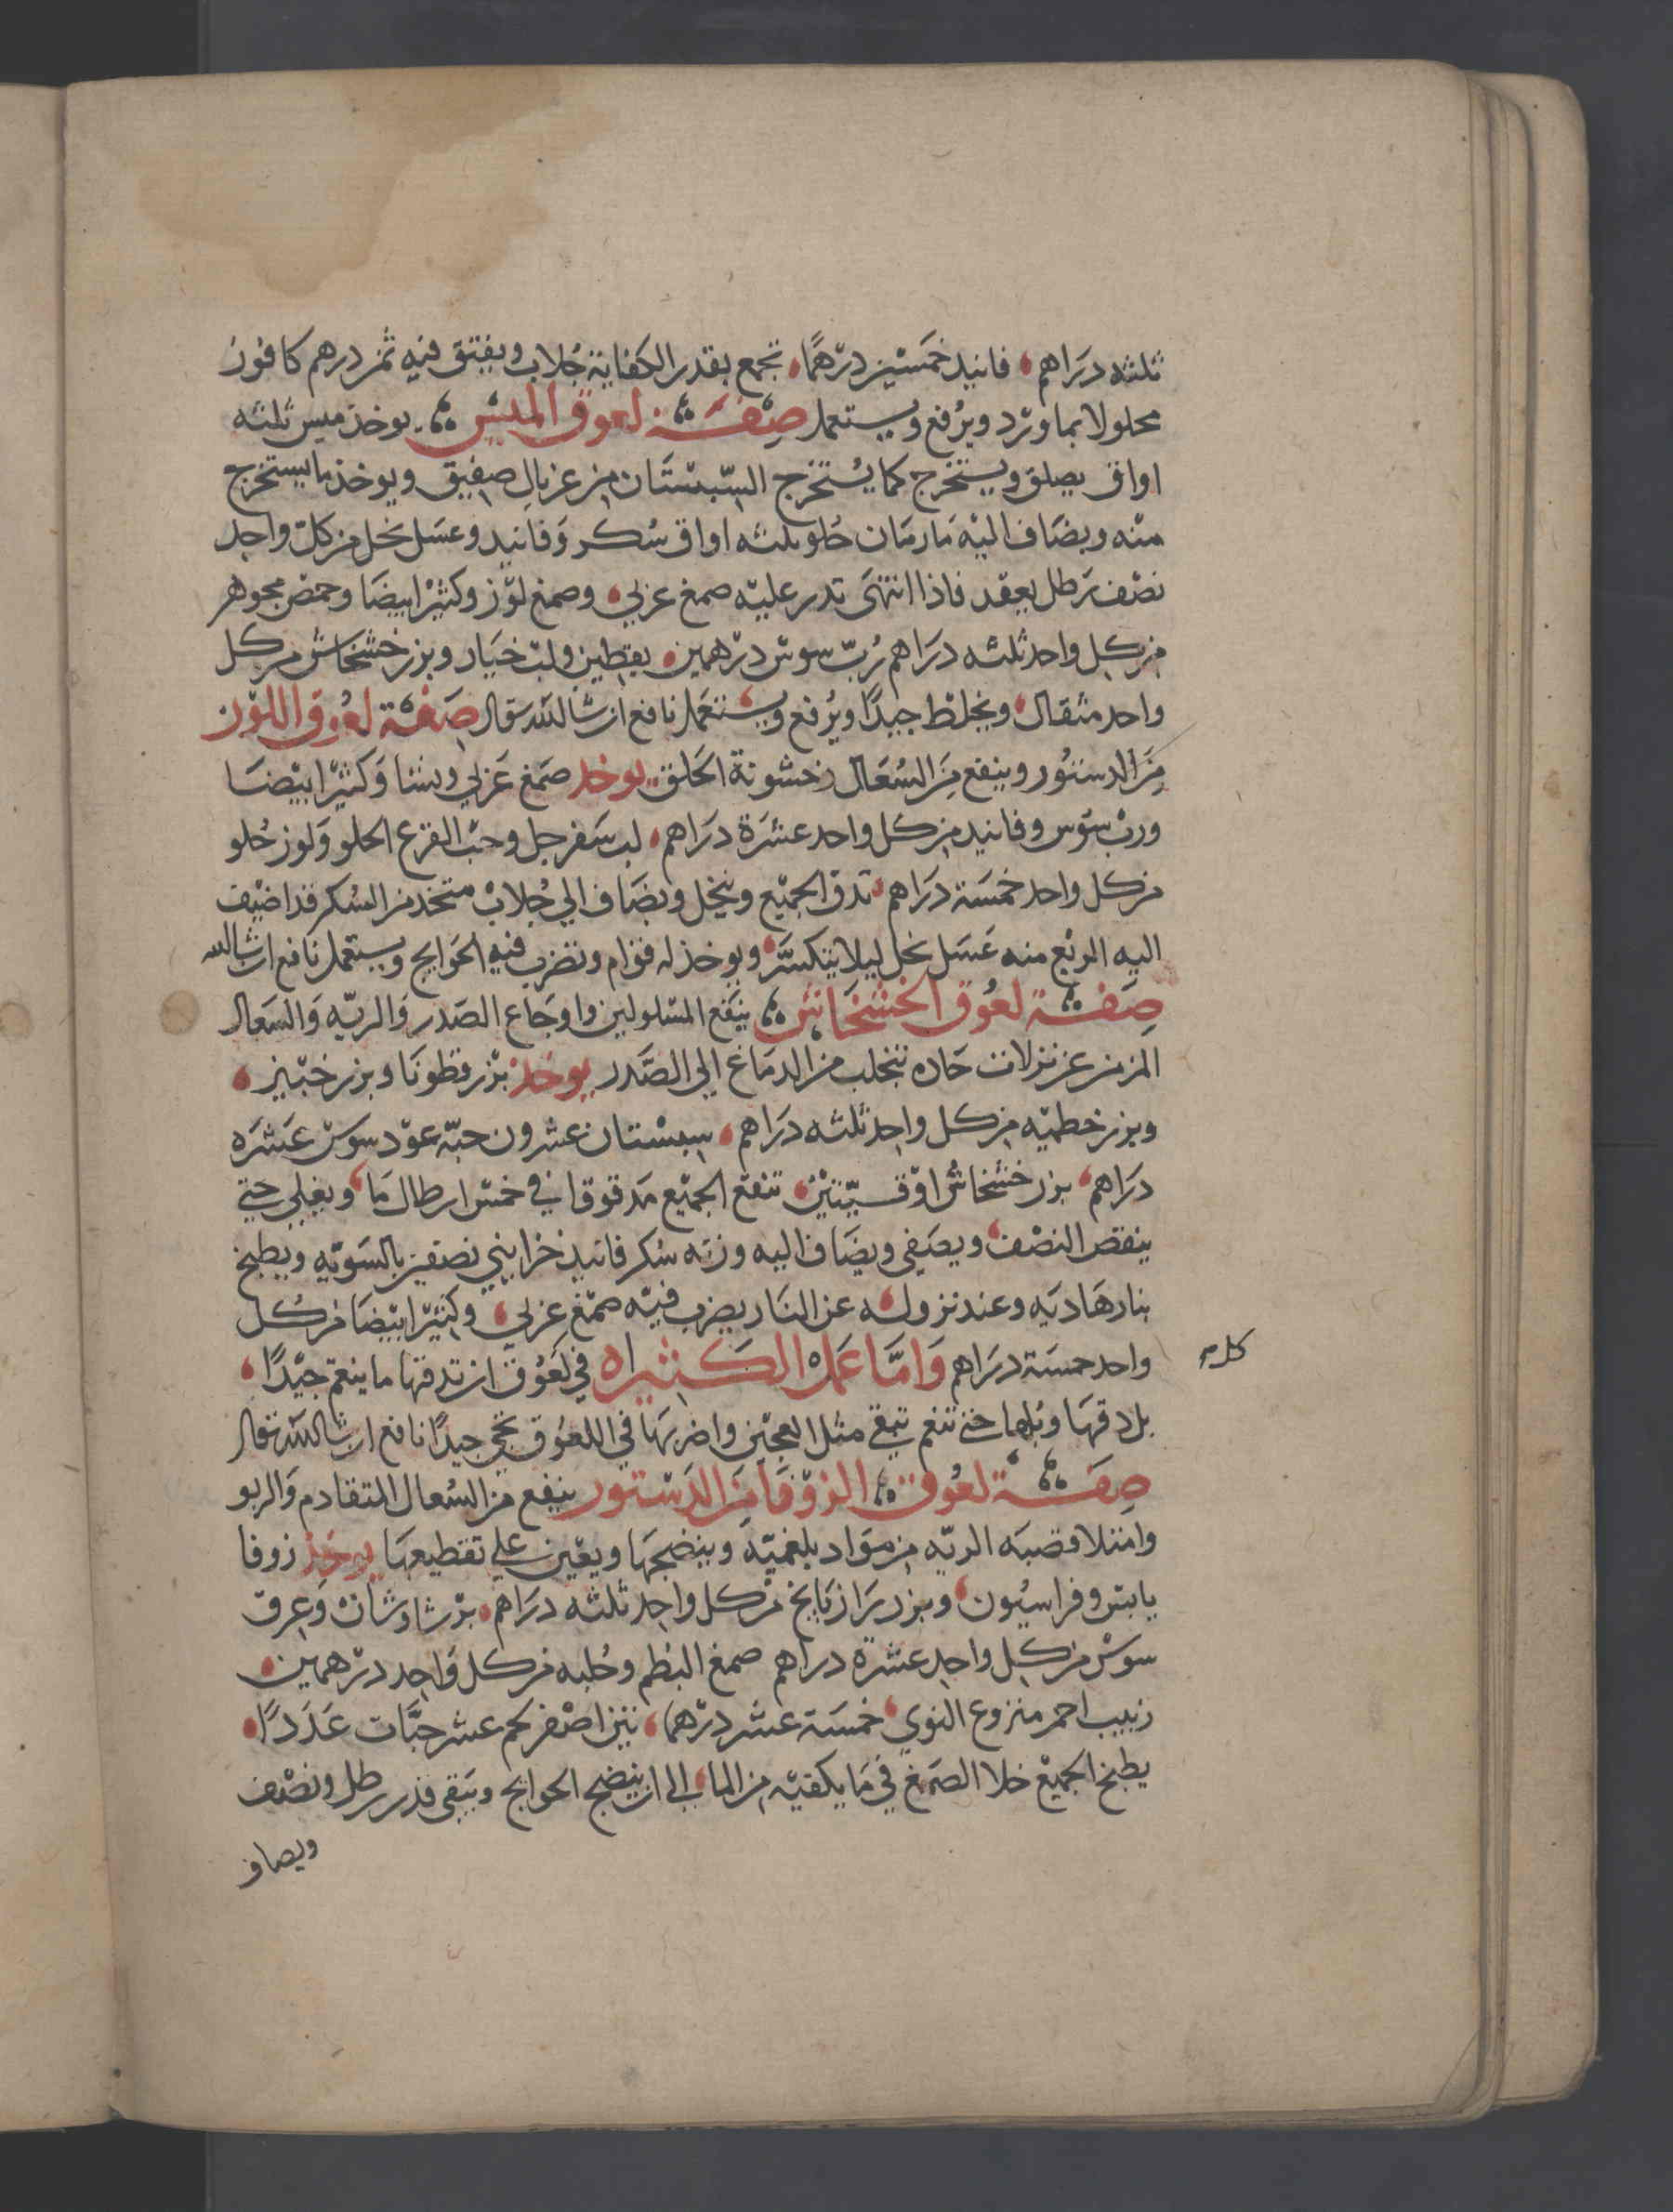 ثلثه دراهم، فانيد خمسين درهمًا، تجمع بقدر الكفاية جُلاب ويفتق فيه ثمن درهم كافور
محلولا بماورد ويرُفع ويستعمل صِفَة لعوق الميس يوخذ ميس ثلثه
اواق يصلق ويستخرج كما يُستخرج السبستان من غربال صفيق ويوخذ ما يستخرج
منه ويضاف اليه مارمان حلو ثلثه اواق سُكر وفانيد وعسل نحل من كل واحد
نصف رطل يعقد فاذا انتهى تدر عليه صمغ عربي، وصمغ لوز وكثيرا بيضا وحمض مجوهر
من كل واحد ثلثه دراهم رُبّ سوس درهمين، يقطين ولب خيار وبزر خشخاش من كل
واحد مثقال، ويخلط جيدًا ويُرفع ويستعمل نافع ان شا الله تعالى صفة لعوق اللوز
من الدستور وينفع من السُعال وخشونة الحلق يوخذ صمغ عربي ونشا وكثيرا بيضا
ورب سوس وفانيد من كل واحد عشرة دراهم، لب سفرجل وحب القرع الحلو ولوز حلو
من كل واحد خمسة دراهم، تدق الجميع وينخل ويضاف الي جُلاب متخذ من السُكر قد اضيف
اليه الربع منه عسل نحل ليلا يتكسر، ويوخذ له قوام وتضرب فيه الحوايج ويستعمل نافع ان شا الله
صفة لعوق الخشخاش ينفع المسلولين واوجاع الصدر والريه والسعال
المزمن عن نزلات حاده تتجلب من الدماغ الي الصدر يوخذ بزر قطونا وبزر خبيز،
وبزر خطميه من كل واحد ثلثه دراهم، سبستان عشرون حبّه عود سوس عشره
دراهم، بزر خشخاش اوقيتين، تنقع الجميع مدقوقا في خمس ارطال ما، ويغلي حتي
ينقص النصف، ويصفي ويضاف اليه وزنه سكر فانيد خزايني نصفين بالسويه ويطبخ
بنار هاديه وعند نزوله عن النار يضرب فيه صمغ عربي، وكثيرا بيضا من كل
واحد خمسة دراهم وَامّا عَمل الكثيراه في لعوق ان تدقها ما ينعم جيدًا،
بل دقها وبُلها حتى تنعم تبقي مثل العجين واضربها في اللعوق تجي جيدًا نافع ان شا الله تعالى
صفة لعوق الزوفا من الدستور ينفع من السُعال المتقادم والربو
وامتلا قصبه الريه من مواد بلغميّه وينضجها ويعين علي تقطيعها يوخذ زوفا
يابس وفراسيون، وبزر رازيانج من كل واحد ثلثه دراهم، برشاوشان وعرق
سوس من كل واحد عشرة دراهم صمغ البطم وحُلبه من كل واحد درهمين،
زبيب احمر منزوع النوي، خمسة عشر درهما، تين اصفر لحم عشر حبّات عَدَدًا،
يطبخ الجميع خلا الصمغ في ما يكفيه من الما، الي ان ينضج الحوايج ويبقي قدر رطل ونصف
ويضاف